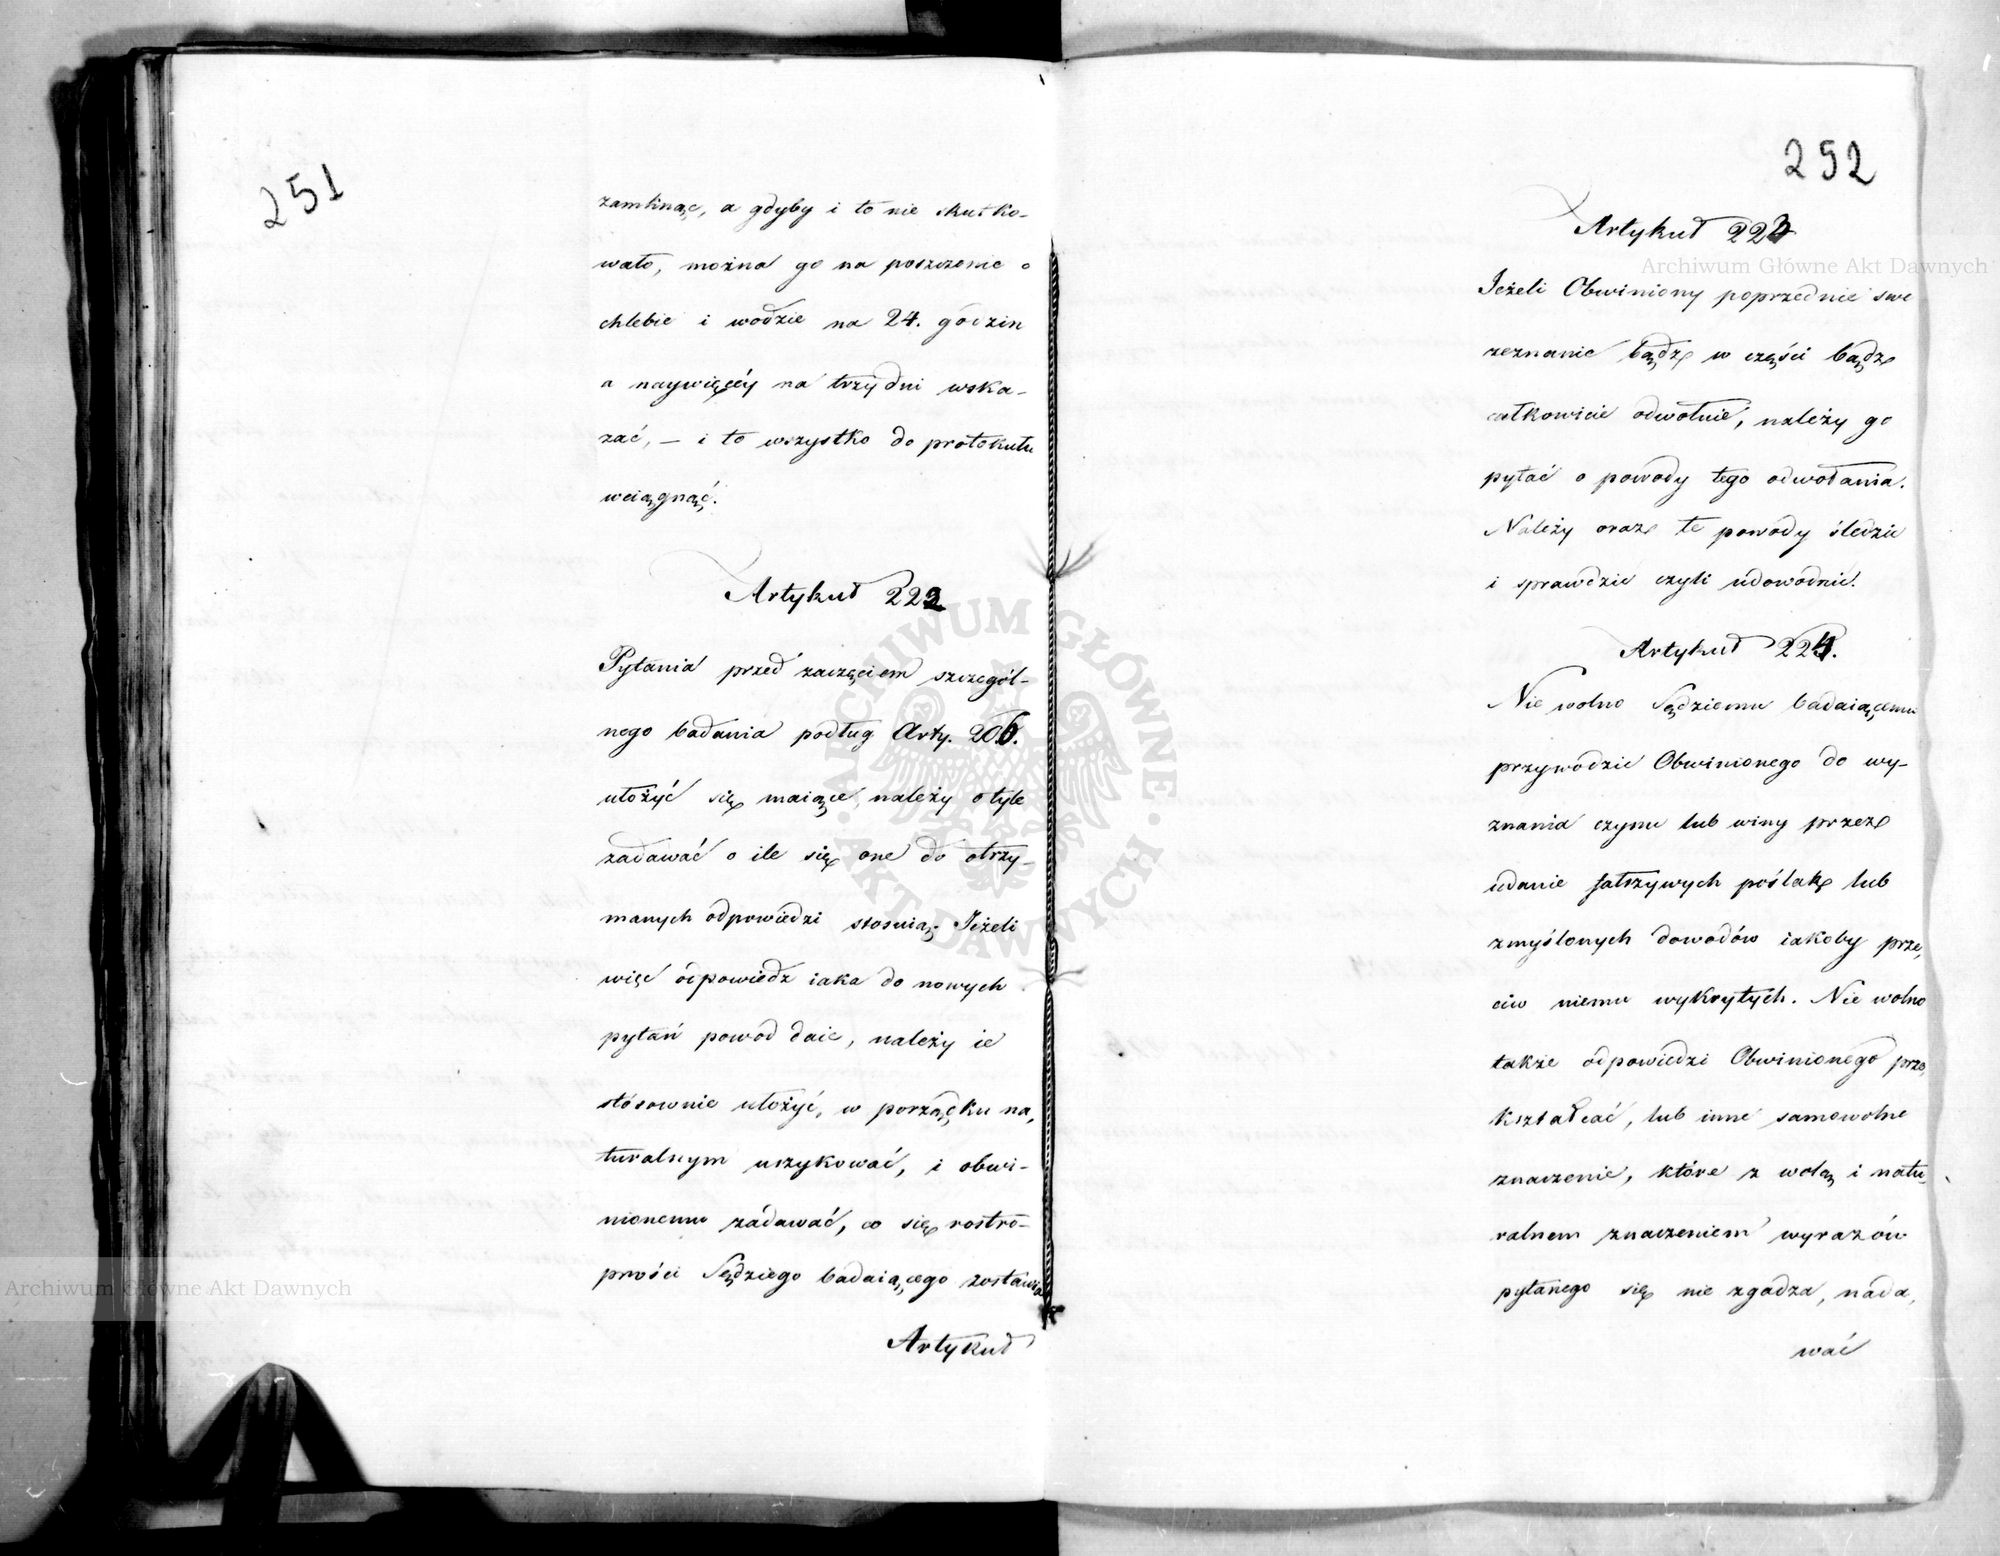 251
zamknąć, a gdyby i to nie skutko-
wało, można go na poszczenie o
chlebie i wodzie na 24. godzin
a naywięcéy na trzy dni wska-
zać, – i to wszystko do protokułu
wciągnąć.
Artykuł 222
Pytania przed zaczęciem szczegól-
nego badania podług Arty. 206.
ułożyć się maiące, należy o tyle
zadawać o ile się one do otrzy-
manych odpowiedzi stosuią. Jeżeli
więc odpowiedz iaka do nowych
pytań powód daie, należy ie
stósownie ułożyć, w porządku na,
turalnym uszykować, i obwi-
nionemu zadawać, co się rostro-
pności Sędziego badaiącego zostawia
Artykuł
252
Artykuł 223
Jeżeli Obwiniony poprzednie swe
zeznanie bądź w części bądź
całkowicie odwołuie, należy go
pytać o powody tego odwołania.
Należy oraz te powody śledzić
i sprawdzić czyli udowodnić.
Artykuł 224.
Nie wolno Sędziemu badaiącemu
przywodzić Obwinionego do wy-
znania czynu lub winy przez
udanie fałszywych poślak lub
zmyślonych dowodów iakoby prze,
ciw niemu wykrytych. Nie wolno
także odpowiedzi Obwinionego prze,
kształcać, lub inne samowolne
znaczenie, które z wolą i natu-
ralnem znaczeniem wyrazów
pytanego się nie zgadza, nada,
wać
Archiwum Główne Akt Dawnych
Archiwum Główne Akt Dawnych
ARCHIWUM GŁÓWNE AKT DAWNYCH